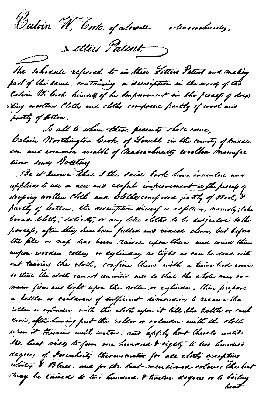 Calvin W. Cook, of Lowell Massachusetts,
Letters Patent
The schedule referred to in these Letters Patent and making
part of the same, containing a description in the words of the
Calvin W. Cook himself of his improvement in the process of dress
ing woollen cloths and cloths composed partly of wool and
partly of cotton.
To all to whom these presents shall come,
Calvin Worthington Cook of Lowell in the county of Middle
sex and commonwealth of Massachusetts woollen manufac
turer sends Greeting
Be it known that I the said Cook have invented and
applied to use a new and useful improvement in the process of
dressing woollen cloth and cloths composed partly of wool, &
partly of cotton, the description whereof is as follows, namely, take
broad cloths, or any like cloths to be
process, after they have been fulled and cloven, but before
the pile or nap has been raised upon them and wind them
upon wooden rollers or cylinders as tight as can be done with
out the cloth, confine them with a
so that the cloth cannot unwind and so that the whole may re
main firm and tight upon the roller or cylinder. Then prepare
a kettle or cauldron of sufficient dimensions to receive the
roller or cylinder with the cloth upon it fill the kettle or caul
dron, after having put the roller or cylinder with the cloth
upon it therein with water, and apply heat thereto until
the heat rises to from one hundred & eighty to two hundred
degrees of Farenheits thermometer for all cloths excepting
& Blues, and for the last mentioned colours the heat
may be raised to two hundred & twelve degrees or to boiling
heat